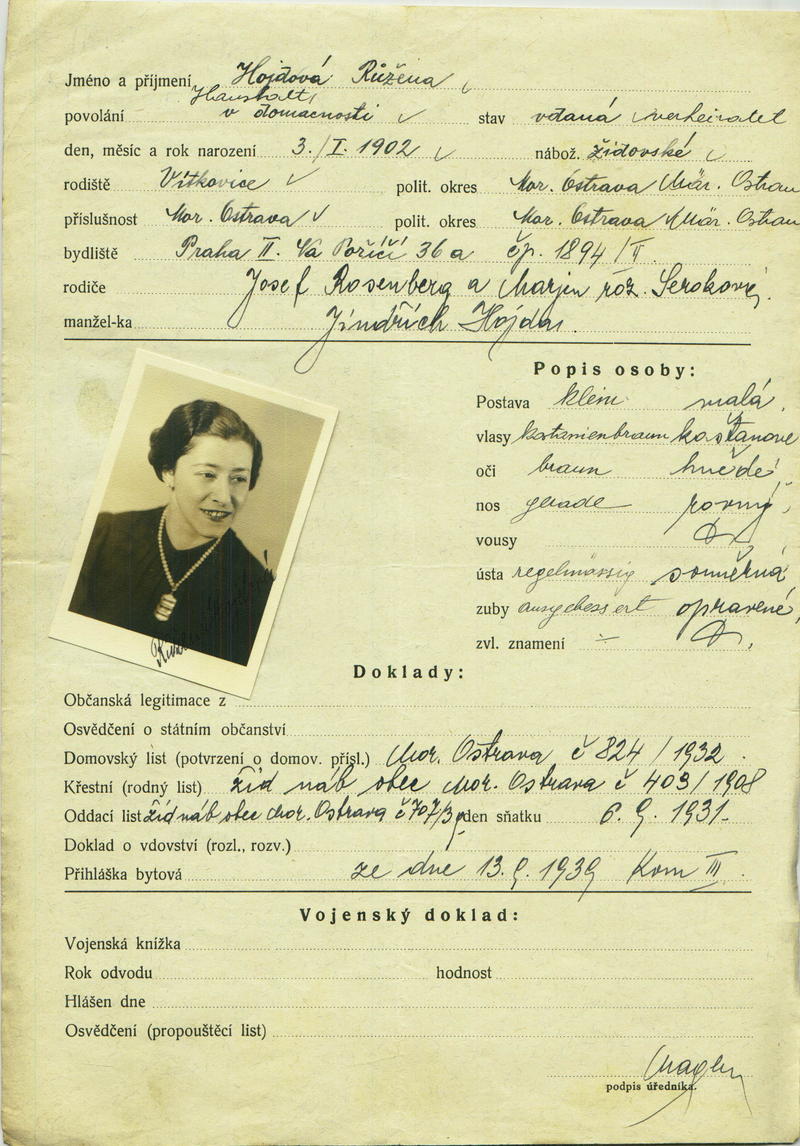 Jméno a příjmení Hojdová Růžena
Haushalt
povolání v domácnosti stav vdaná verheiratet
den, měsíc a rok narození 3./I. 1902 nábož. židovské
rodiště Vítkovice polit. okres Mor. Ostrava Mär. Ostrau
příslušnost Mor. Ostrava polit. okres Mor. Ostrava Mär. Ostrau
bydliště Praha II. Na Poříčí 36a čp. 1894/II.
rodiče Josef Rosenberg a roz.
manžel-ka Jindřich Hojda.
Popis osoby:
Postava klein malá,
vlasy kastanienbraun kaštanové
oči braun hnědé,
nos gerade rovný,
vousy
ústa regelmässig souměrná,
zuby ausgebessert opravené,
zvl. znamení
Doklady:
Občanská legitimace z
Osvědčení o státním občanství
Domovský list (potvrzení o domov. přísl.) Mor. Ostrava č 824/1932.
Křestní (rodný list) žid náb obec Mor. Ostrava č 403/1908
Oddací list žid náb obec Mor. Ostrava č 707/ den sňatku 6. 9. 1931.
Doklad o vdovství (rozl., rozv.)
Přihláška bytová ze dne 13. 9. 1939 Kom III.
Vojenský doklad:
Vojenská knížka
Rok odvodu hodnost
Hlášen dne
Osvědčení (propouštěcí list)
podpis úředníka.